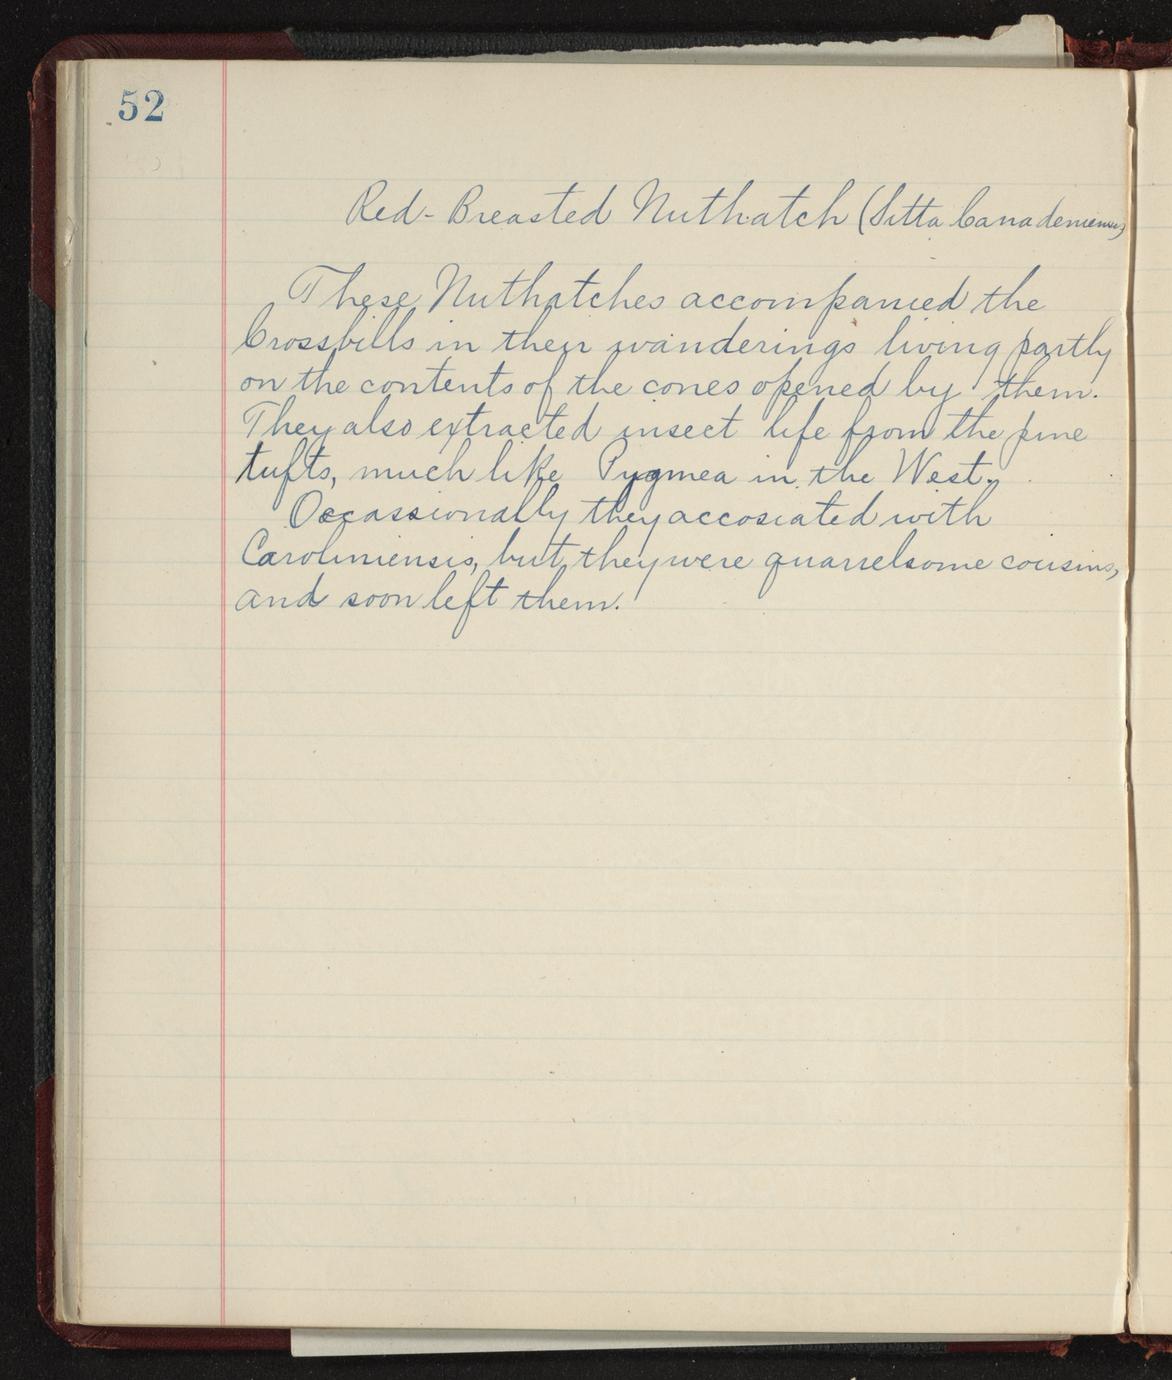 52
Red-Breasted Nuthatch (Sitta Canadensiensis)
These Nuthatches accompanied the
Crossbills in their wanderings living partly
on the contents of the cones opened by them.
They also extracted insect life from the pine
tufts, much like Pygmea in the West.
Occassionally they accosiated with
Caroliniensis, but they were quarrelsome cousins,
and soon left them.